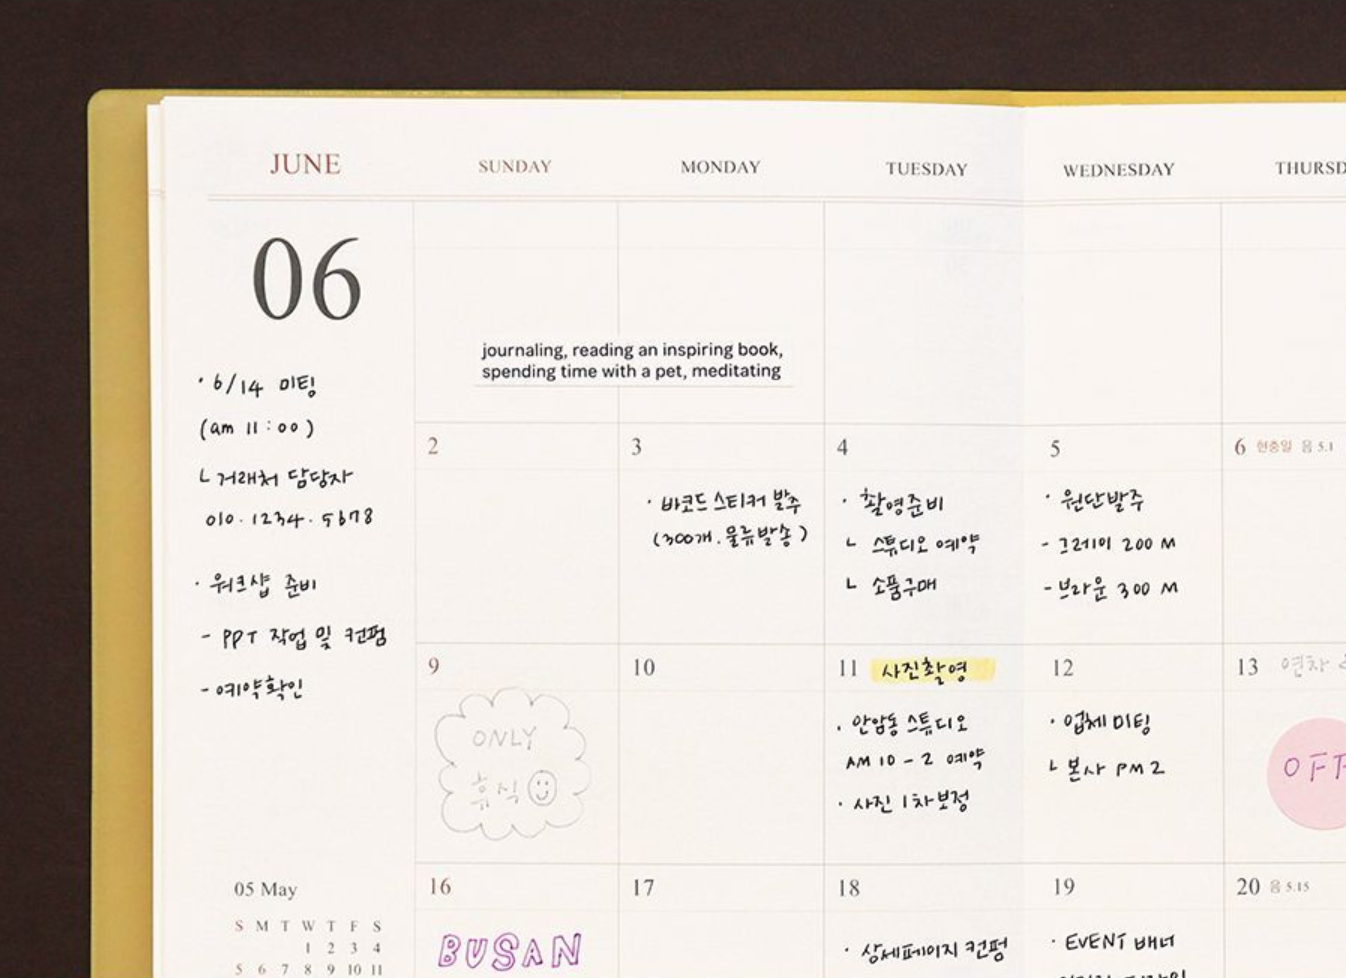 JUNE
SUNDAY
MONDAY
TUESDAY
WEDNESDAY
THURSD
06
journaling, reading an inspiring book,
spending time with a pet, meditating
· 6/14 미팅
(am 11:00)
ㄴ거래처 담당자
010. 1234. 5678
· 워크샵 준비
- PPT 작업 및 컨펌
- 예약확인
2
3
· 바코드 스티커 발주
(300개. 물류발송)
4
· 촬영준비
ㄴ 스튜디오 예약
ㄴ 소품구매
5
· 원단발주
- 그레이 200 M
- 브라운 300 M
6 현충일 음 5.1
9
ONLY
휴식
10
11 사진촬영
· 안암동 스튜디오
AM 10 - 2 예약
· 사진 1차보정
12
· 업체 미팅
ㄴ 본사 PM 2
13 연차
OFF
16
BUSAN
17
18
· 상세페이지 컨펌
19
· EVENT 배너
20 음 5.15
05 May
S M T W T F S
1 2 3 4
5 6 7 8 9 10 11